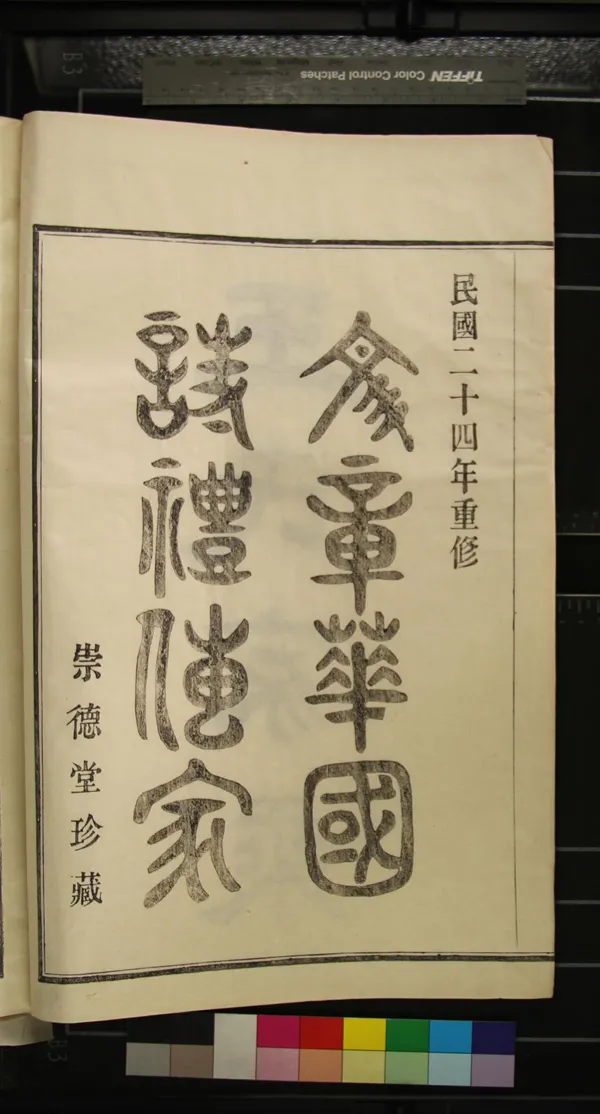 民國二十四年重修
文章華國
詩禮傳家
崇德堂珍藏
TIFFEN Color Control Patches
B3